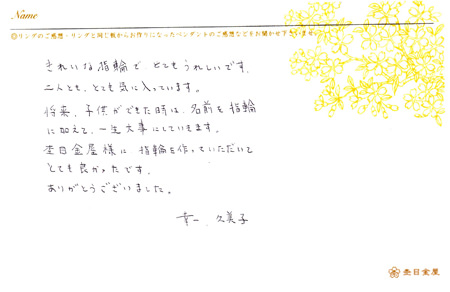 Name
◎リングのご感想・リングと同じ板からお作りになったペンダントのご感想などをお聞かせ下さいませ。
きれいな指輪で、とてもうれしいです。
二人とも、とても気に入っています。
将来、子供ができた時は、名前を指輪
に加えて、一生大事にしていきます。
杢目金屋様に、指輪を作っていただいて
とても良かったです。
ありがとうございました。
幸一、久美子
杢目金屋